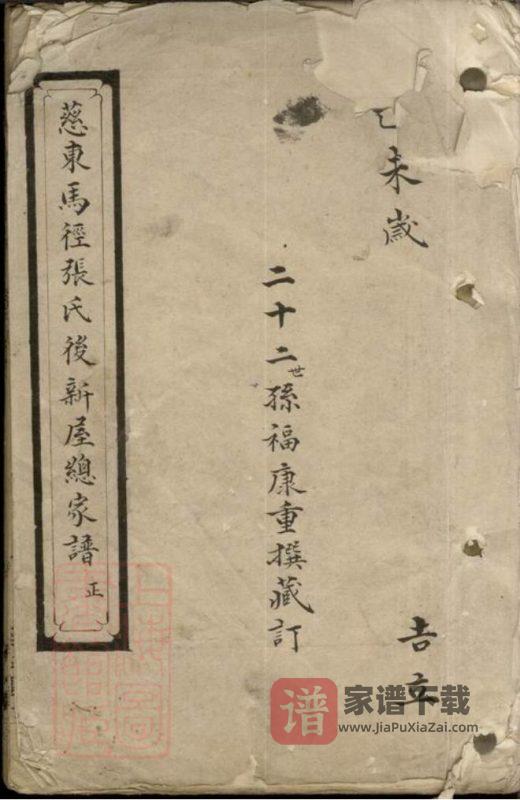 未歲
二十二世孫福康重撰藏訂
吉立
慈東馬徑張氏後新屋總家譜 正
谱 家谱下载
www.JiaPuXiaZai.com